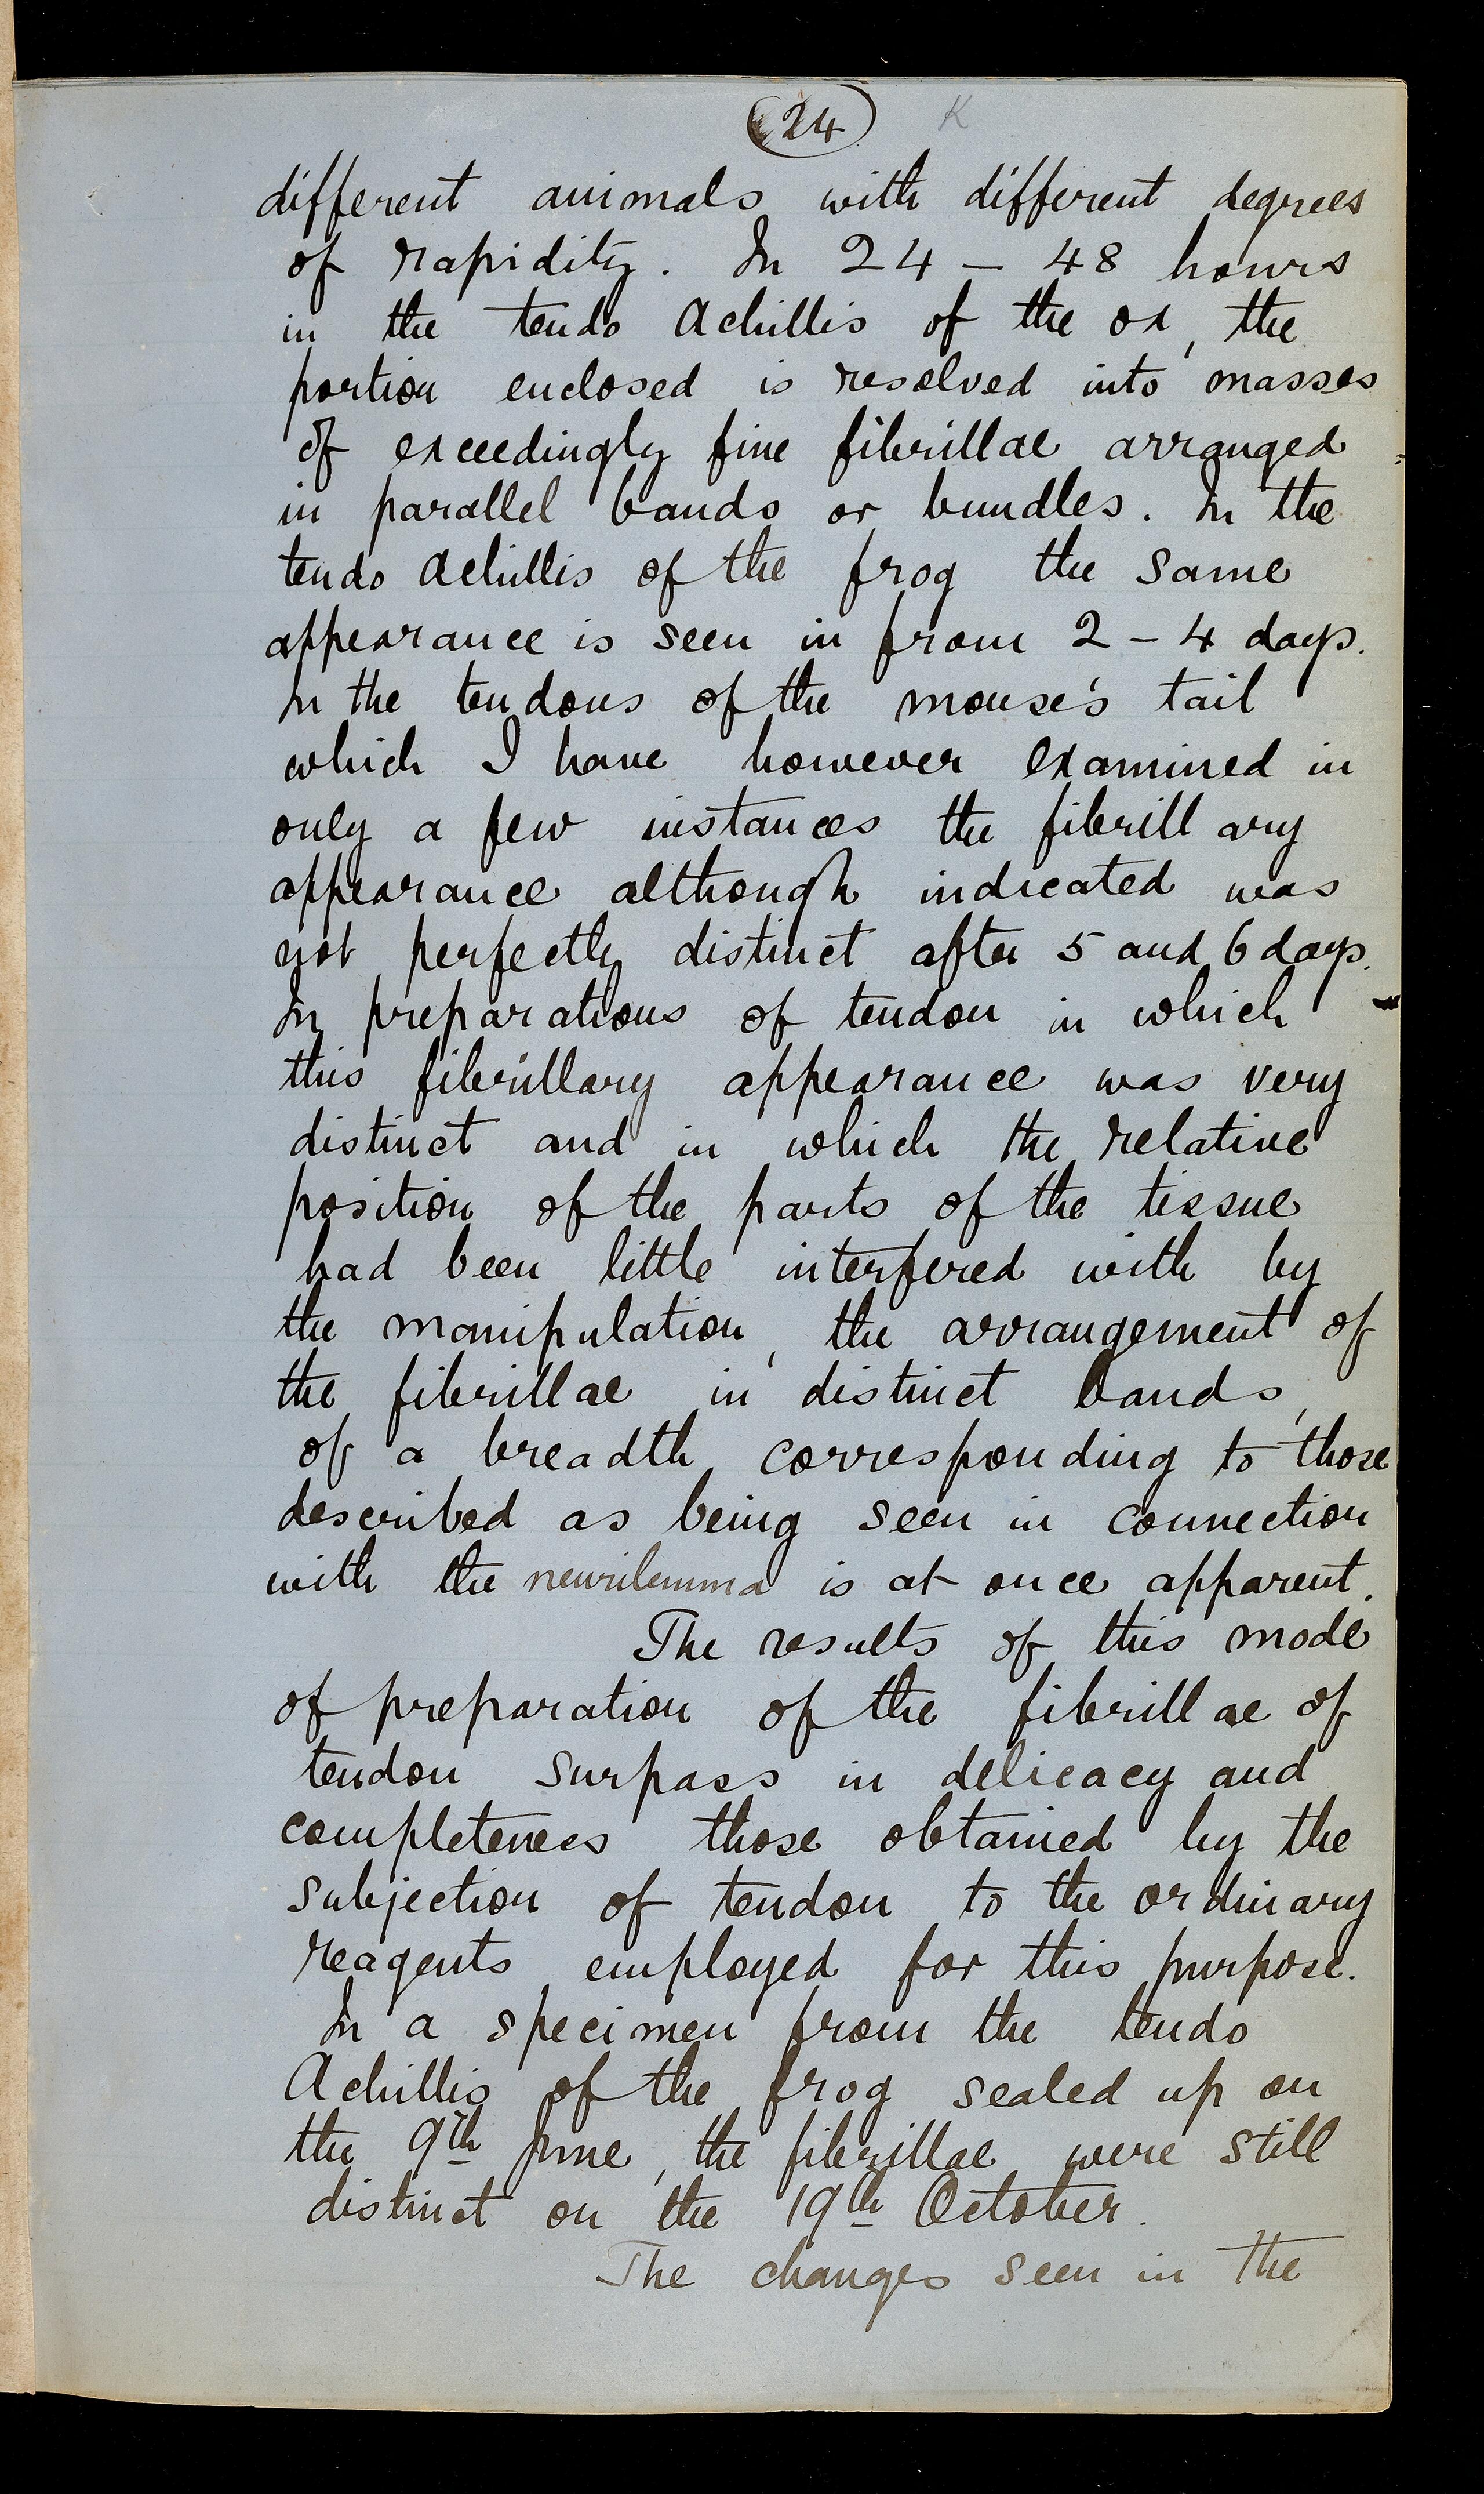 24 K
different animals with different degrees
of rapidity. In 24 – 48 hours
in the tendo Achillis of the ox, the
portion enclosed is resolved into masses
of exceedingly fine fibrillae arranged
in parallel bands or bundles. In the
tendo Achillis of the frog the same
appearance is seen in from 2 – 4 days.
In the tendons of the mouse's tail
which I have however examined in
only a few instances the fibrillary
appearance although indicated was
not perfectly distinct after 5 and 6 days.
In preparations of tendon in which
this fibrillary appearance was very
distinct and in which the relative
position of the parts of the tissue
had been little interfered with by
the manipulation, the arrangement of
the fibrillae in distinct bands,
of a breadth corresponding to those
described as being seen in connection
with the neurilemma is at once apparent.
The results of this mode
of preparation of the fibrillae of
tendon surpass in delicacy and
completeness those obtained by the
subjection of tendon to the ordinary
reagents employed for this purpose.
In a specimen from the tendo
Achillis of the frog sealed up on
the 9th June, the fibrillae were still
distinct on the 19th October.
The changes seen in the